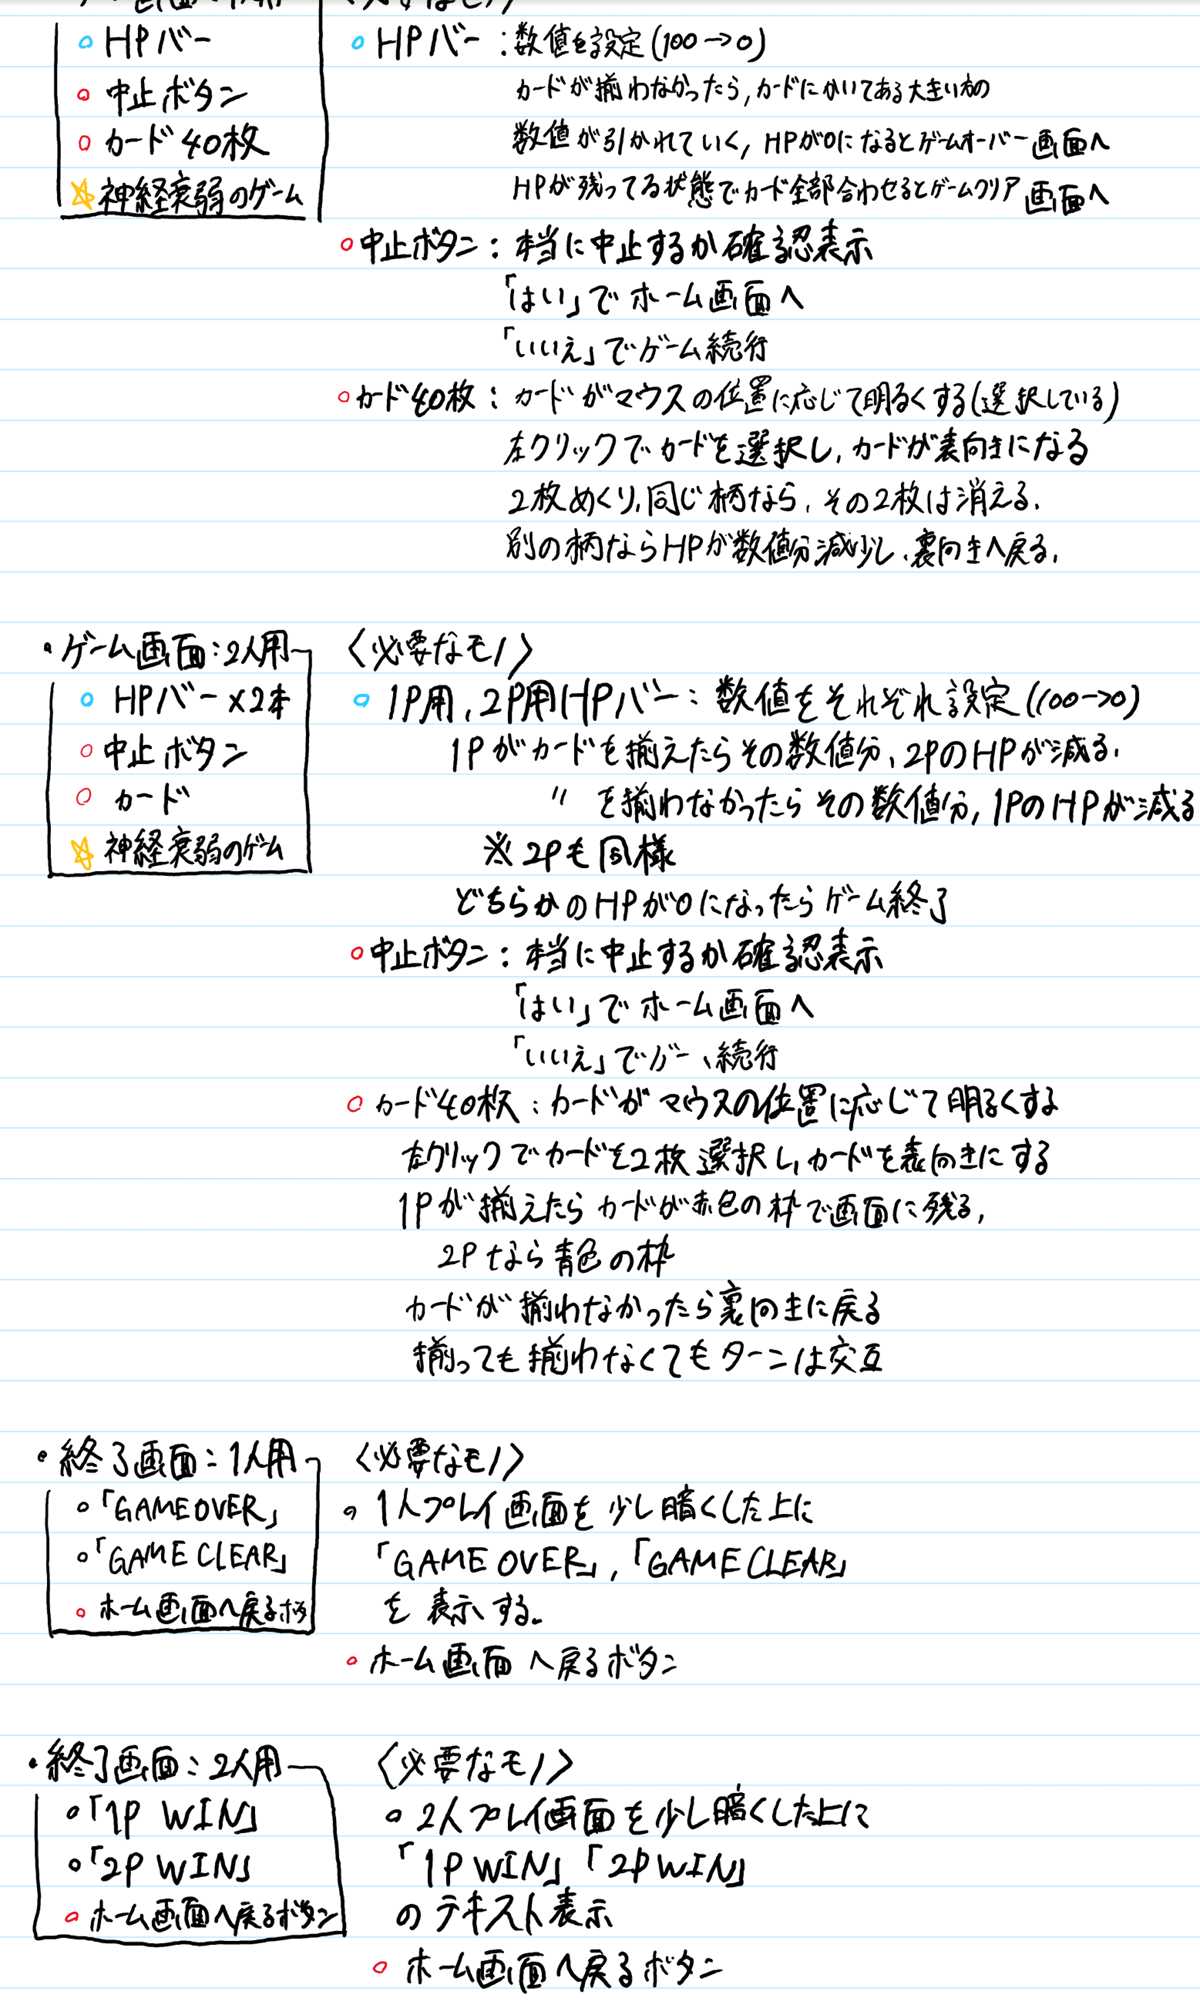 HPバー
中止ボタン
カード40枚
☆神経衰弱のゲーム
HPバー：数値を設定(100→0)
カードが揃わなかったら，カードにかいてある大きい方の
数値が引かれていく，HPが0になるとゲームオーバー画面へ
HPが残ってる状態でカード全部合わせるとゲームクリア画面へ
中止ボタン：本当に中止するか確認表示
「はい」でホーム画面へ
「いいえ」でゲーム続行
カード40枚：カードがマウスの位置に応じて明るくする(選択している)
左クリックでカードを選択し，カードが表向きになる
2枚めくり，同じ柄なら，その2枚は消える．
別の柄ならHPが数値分減少し、裏向きへ戻る．
・ゲーム画面：2人用
HPバー×2本
中止ボタン
カード
☆神経衰弱のゲーム
〈必要なモノ〉
1P用，2P用HPバー：数値をそれぞれ設定(100→0)
1Pがカードを揃えたらその数値分，2PのHPが減る．
〃 を揃わなかったらその数値分，1PのHPが減る
※2Pも同様
どちらかのHPが0になったらゲーム終了
中止ボタン：本当に中止するか確認表示
「はい」でホーム画面へ
「いいえ」でゲー、続行
カード40枚：カードがマウスの位置に応じて明るくする
左クリックでカードを2枚選択し，カードを表向きにする
1Pが揃えたらカードが赤色の枠で画面に残る，
2Pなら青色の枠
カードが揃わなかったら裏向きに戻る
揃っても揃わなくてもターンは交互
・終了画面：1人用
「GAMEOVER」
「GAME CLEAR」
ホーム画面へ戻るボタ
〈必要なモノ〉
1人プレイ画面を少し暗くした上に
「GAME OVER」，「GAME CLEAR」
を表示する。
ホーム画面へ戻るボタン
・終了画面：2人用
「1P WIN」
「2P WIN」
ホーム画面へ戻るボタン
〈必要なモノ〉
2人プレイ画面を少し暗くした上に
「1P WIN」「2P WIN」
のテキスト表示
ホーム画面へ戻るボタン